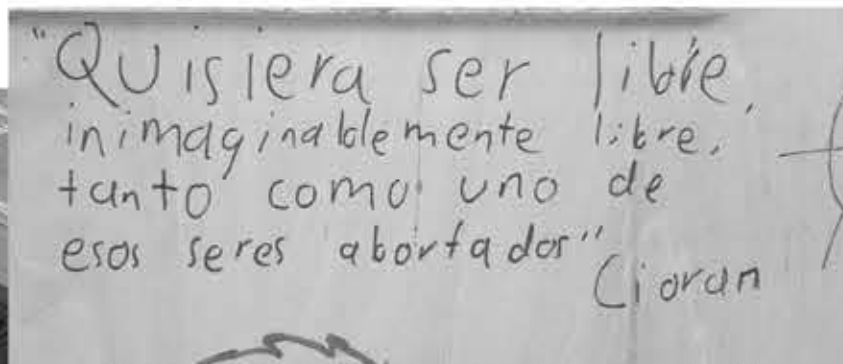 "Quisiera ser libre,
inimaginablemente libre,
tanto como uno de
esos seres abortados"
Cioran